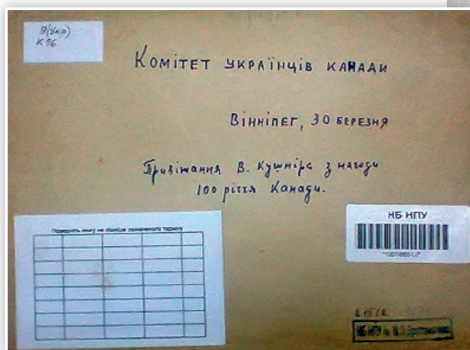 9(Укр)
К 76
КОМІТЕТ УКРАЇНЦІВ КАНАДИ
ВІННІПЕГ, 30 БЕРЕЗНЯ
Привітання В. Кушніра з нагоди
100 річчя Канади.
Поверніть книгу не пізніше зазначеного терміну
НБ НПУ